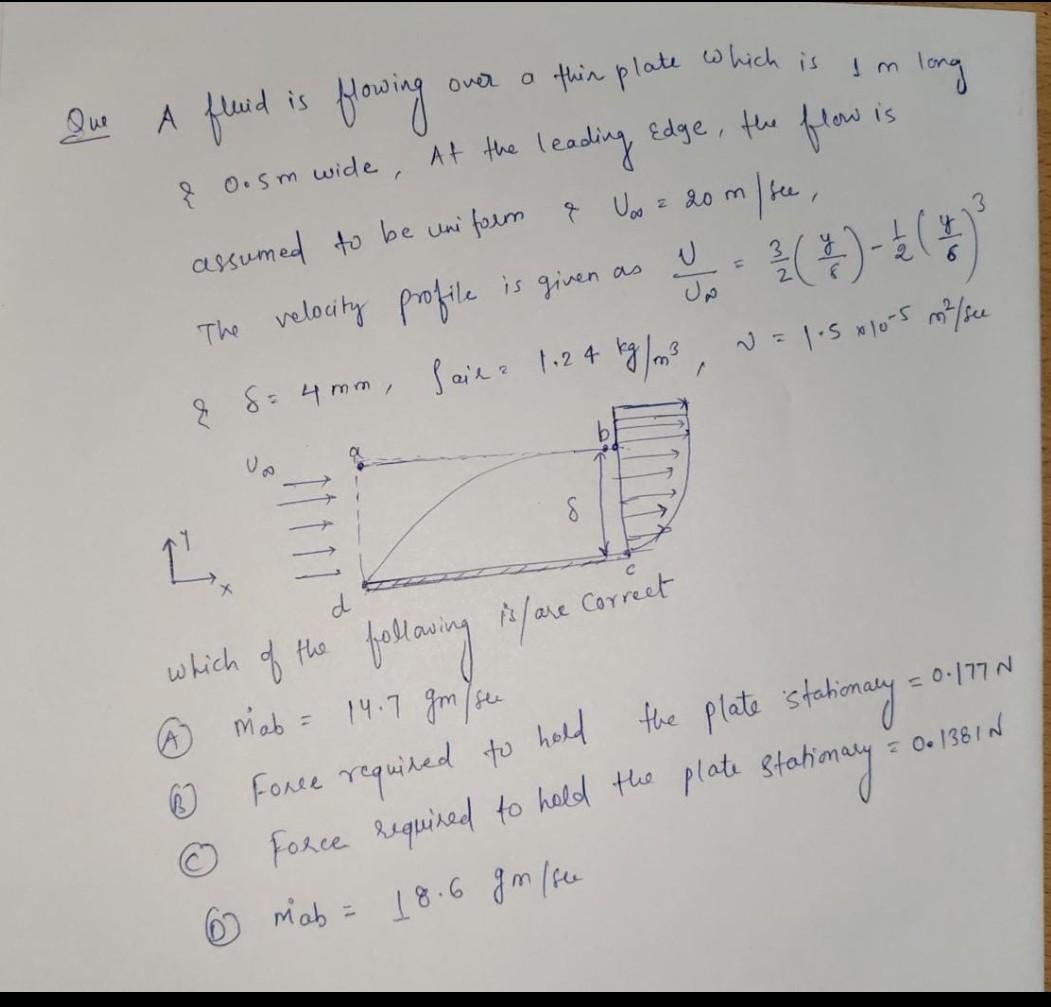 Que A fluid is flowing over a thin plate which is 1 m long
& 0.5m wide, At the leading Edge, the flow is
assumed to be uniform & U∞ = 20 m/sec,
The velocity profile is given as U/U∞ = 3/2 (y/δ) - 1/2 (y/δ)^3
& δ = 4 mm, ρair = 1.24 kg/m³, ν = 1.5 x10^-5 m²/sec
U∞
a
b
δ
y
x
d
c
which of the following is/are Correct
(A) ṁab = 14.7 gm/sec
(B) Force required to hold the plate stationary = 0.177 N
(C) Force required to hold the plate stationary = 0.1381 N
(D) ṁab = 18.6 gm/sec